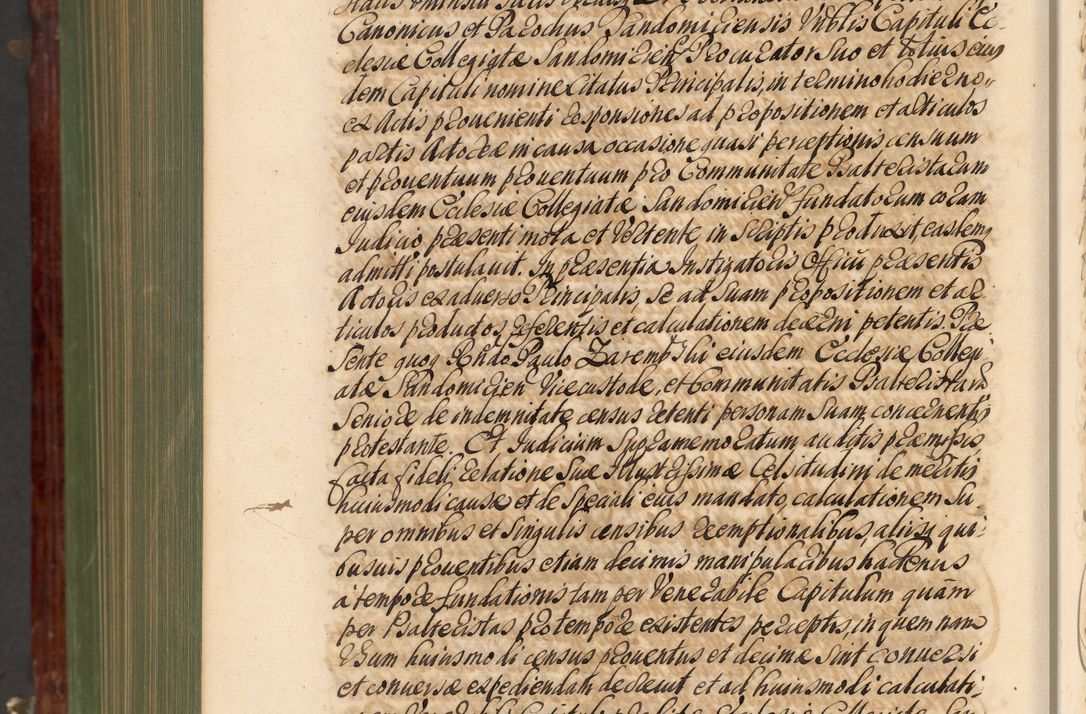 Canonicus et Parochus Sandomiriensis Vnblis Capituli Ec-
clesiæ Collegiatæ Sandomirien Procurator suo et totius eius
dem Capituli nomine Citatus Principalis, in termino hodierno
ex Actis proueniente responsiones ad propositionem et articulos
partis Actoreæ in causa occasione quasi perceptionis censuum
et prouentuum prouentuum pro Communitate Psalteristarum
eiusdem Ecclesiæ Collegiatæ Sandomirien fundatorum coram
Iudicio præsenti mota et vertente, in scriptis produxit, easdem
admitti postulauit. In præsentia Instigatoris Officii præsentis
Actoris ex aduerso Principalis, se ad suam propositionem et ar
ticulos productos referentis et calculationem decerni petentis. Præ
sente quoq Rndo Paulo Zarembski eiusdem Ecclesiæ Collegi
atæ Sandomirien Vicecustode, et Communitatis Psalteristarum
Seniore de indemnitate census retenti personam suam concernentis
protestante. Et Iudicium supramemoratum auditis præmissis
facta fideli relatione suæ Illustrissimæ Celsitudini de meritis
huiusmodi causæ et de speciali eius mandato, calculationem su
per omnibus et singulis censibus reemptionalibus, aliisq qui-
busuis prouentibus etiam decimis manipularibus hactenus
a tempore fundationis tam per Venerabile Capitulum quàm
per Psalteristas pro tempore existentes perceptis, in quem nam
vsum huiusmodi census prouentus et decimæ sint conuersi
et conuersæ expediendam decreuit et ad huiusmodi calculati-